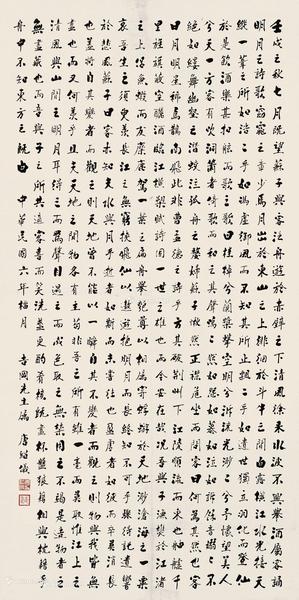 壬戌之秋七月既望蘇子與客泛舟遊於赤壁之下清風徐來水波不興舉酒屬客誦
明月之詩歌窈窕之章少焉月出於東山之上徘徊於斗牛之間白露橫江水光接天
縱一葦之所如浩浩乎如馮虛御風而不知其所止飄飄乎如遺世獨立羽化而登仙
於是飲酒樂甚扣舷而歌之歌曰桂棹兮蘭槳擊空明兮泝流光渺渺兮予懷望美人
兮天一方客有吹洞簫者倚歌而和之其聲嗚嗚然如怨如慕如泣如訴餘音嫋嫋不
絕如縷舞幽壑之潛蛟泣孤舟之嫠婦蘇子愀然正襟危坐而問客曰何為其然也客
曰月明星稀烏鵲南飛此非曹孟德之詩乎方其破荊州下江陵順流而東也舳艫千
里旌旗蔽空釃酒臨江橫槊賦詩固一世之雄也而今安在哉況吾與子漁樵於江渚
之上侶魚蝦而友麋鹿駕一葉之扁舟舉匏尊以相屬寄蜉蝣於天地渺滄海之一粟
哀吾生之須臾羨長江之無窮挾飛仙以遨遊抱明月而長終知不可乎驟得託遺響
於悲風蘇子曰客亦知夫水與月乎逝者如斯而未嘗往也盈虛者如彼而卒莫消長
也蓋將自其變者而觀之則天地曾不能以一瞬自其不變者而觀之則物與我皆無
盡也而又何羨乎且夫天地之間物各有主苟非吾之所有雖一毫而莫取惟江上之
清風與山間之明月耳得之而為聲目遇之而成色取之無禁用之不竭是造物者之
無盡藏也而吾與子之所共適客喜而笑洗盞更酌肴核既盡杯盤狼籍相與枕藉乎
舟中不知東方之既白 中華民國六年桂月 岡先生屬 唐紹儀